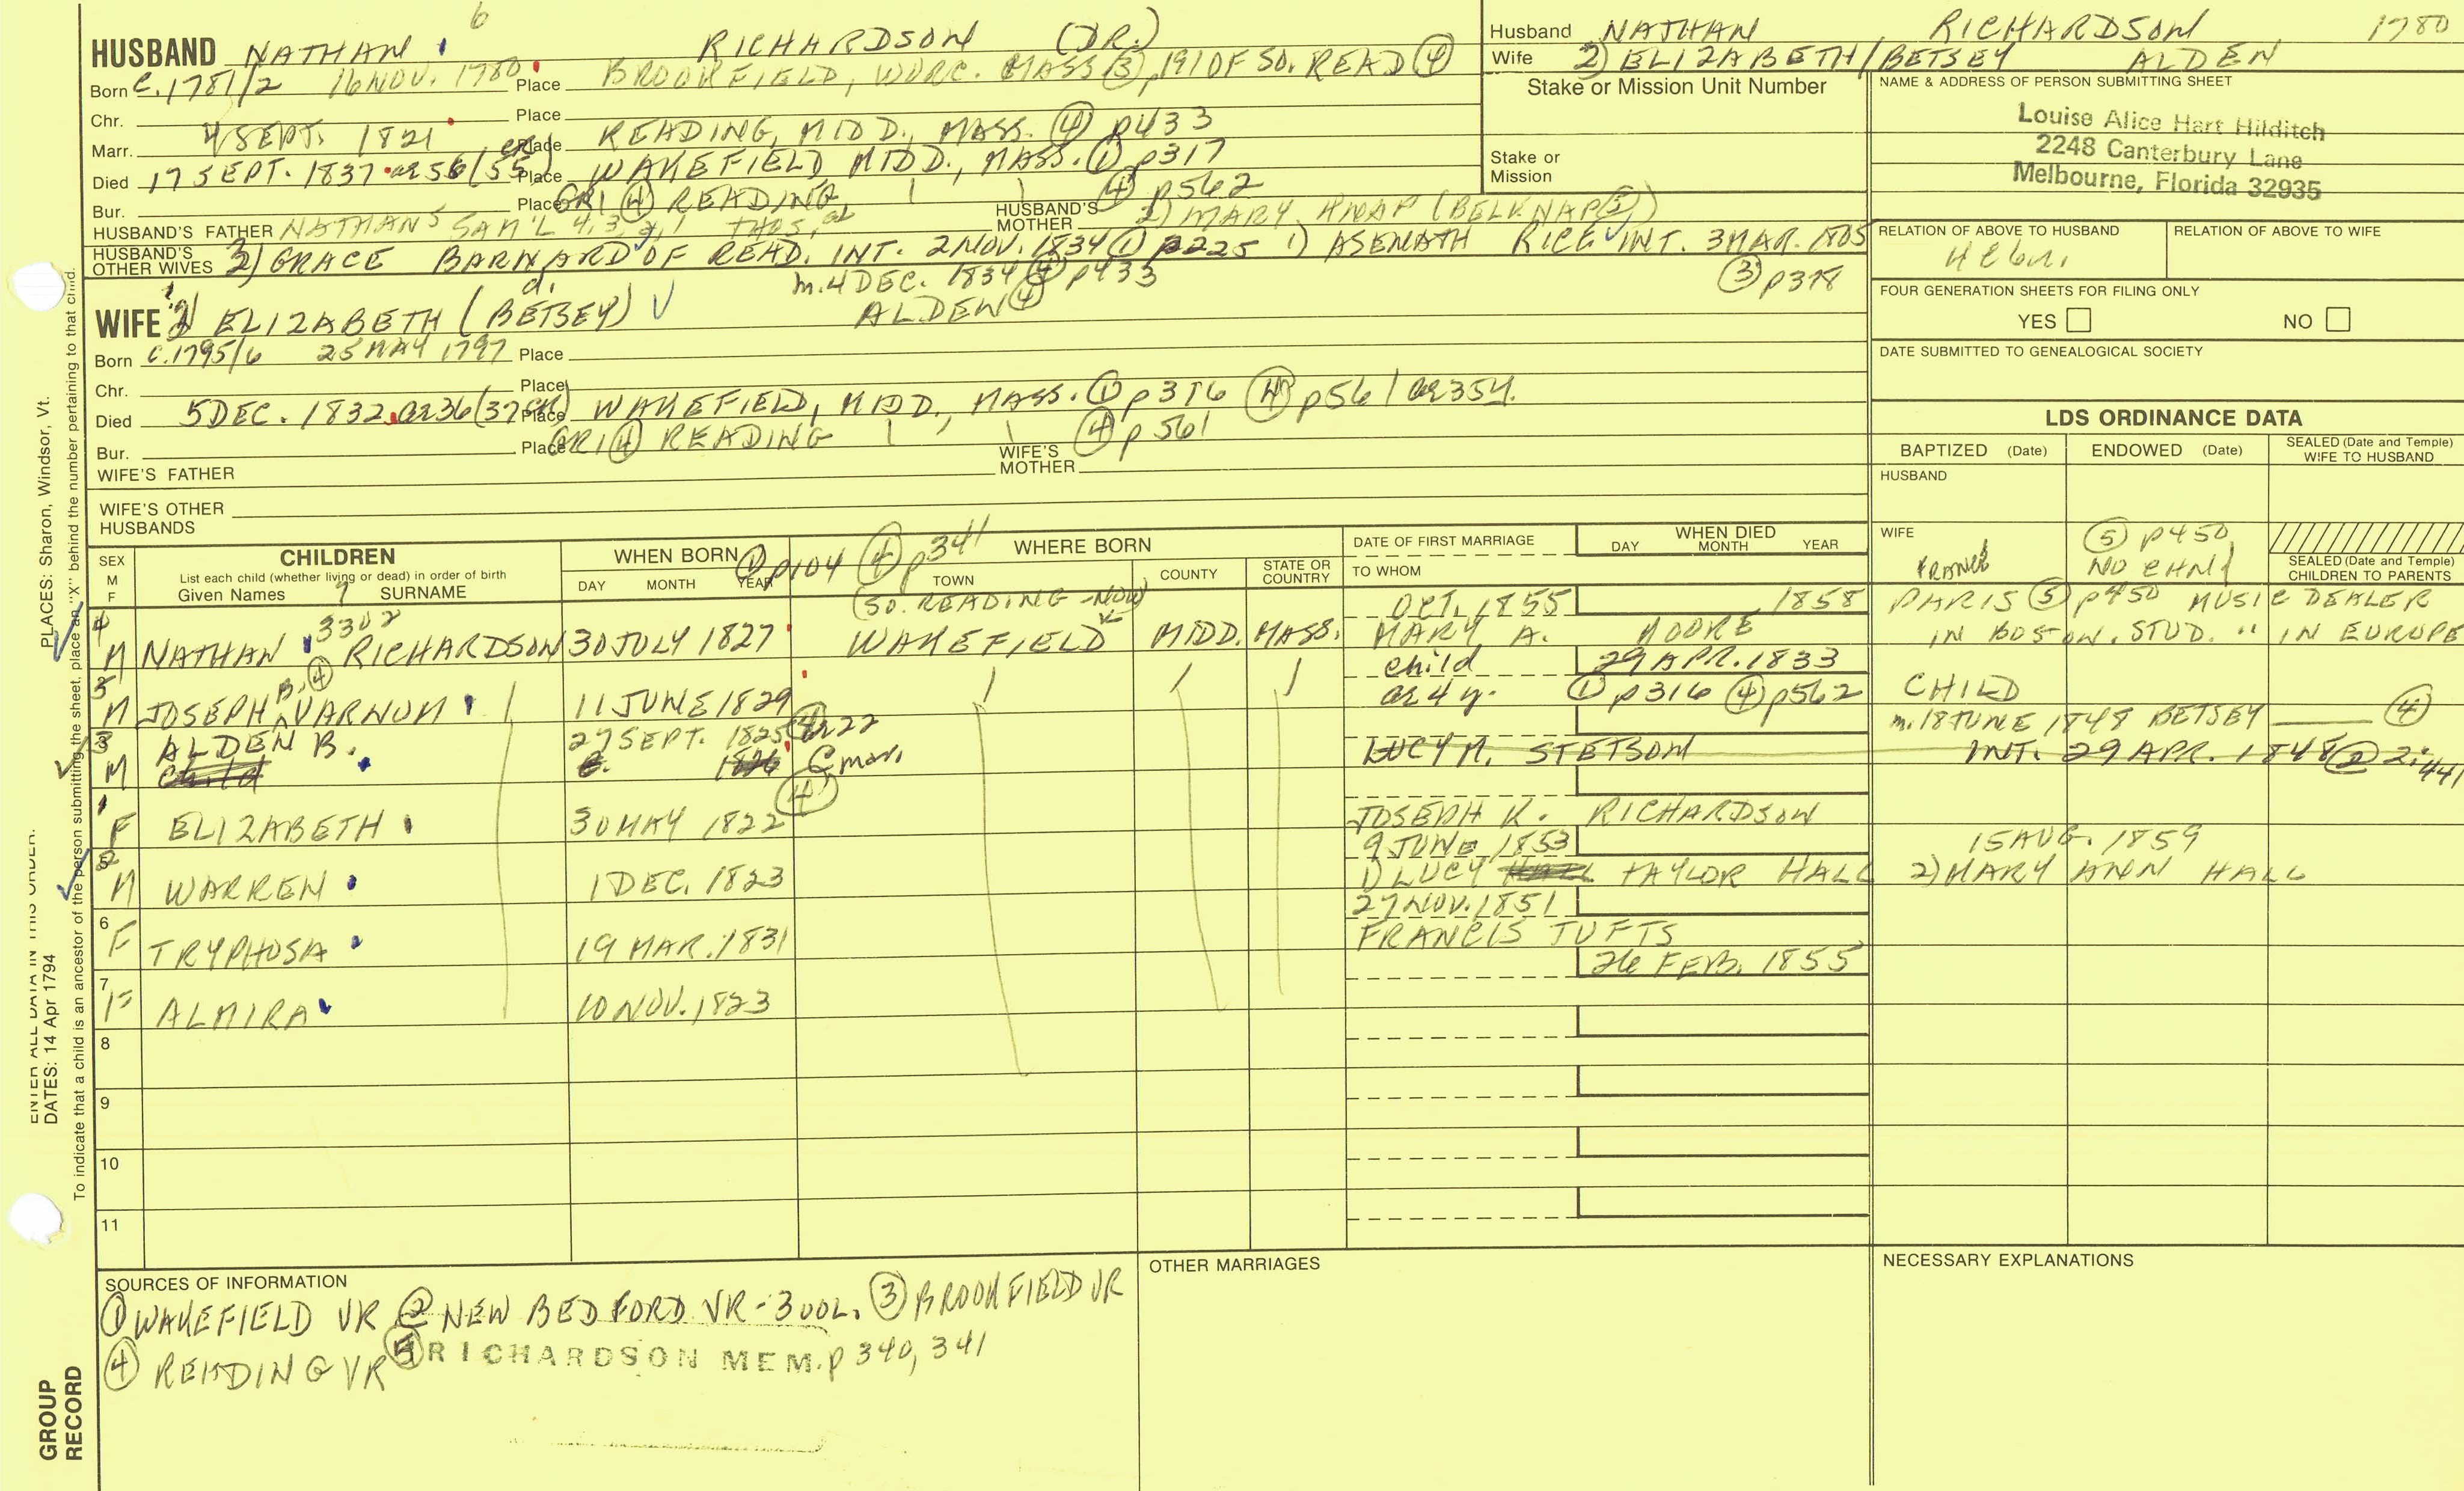 6
HUSBAND NATHAN RICHARDSON (DR.)
Born C.1781/2 16 NOV. 1780 Place BROOKFIELD, WORC. MASS (3), 191 OF SO. READ (4)
Chr. Place
Marr. 4 SEPT. 1821 Place READING, MIDD., MASS. (4) p433
Died 17 SEPT. 1837 ae 56 (55 GR) Place WAKEFIELD MIDD., MASS. (1) p317
Bur. Place GR1 (4) READING (4) p562
HUSBAND'S FATHER NATHAN 5 SAM'L 4, 3, 2, 1 THOS. HUSBAND'S MOTHER 2) MARY KNAP (BELKNAP (5))
HUSBAND'S OTHER WIVES 3) GRACE BARNARD OF READ. INT. 2 NOV. 1834 (1) p225 1) ASENATH RICE INT. 3 MAR. 1805
d. m. 4 DEC. 1834 (4) p433 (3) p378
WIFE 2) ELIZABETH (BETSEY) ALDEN (4)
Born C.1795/6 25 MAY 1797 Place
Chr. Place
Died 5 DEC. 1832 ae 36 (37 GR) Place WAKEFIELD, MIDD., MASS. (1) p316 (4) p561 ae 35 y.
Bur. Place GR1 (4) READING (4) p561
WIFE'S FATHER WIFE'S MOTHER
WIFE'S OTHER HUSBANDS
Husband NATHAN RICHARDSON 1780
Wife 2) ELIZABETH/BETSEY ALDEN
Stake or Mission Unit Number
Stake or Mission
NAME & ADDRESS OF PERSON SUBMITTING SHEET
Louise Alice Hart Hilditch
2248 Canterbury Lane
Melbourne, Florida 32935
RELATION OF ABOVE TO HUSBAND RELATION OF ABOVE TO WIFE
FOUR GENERATION SHEETS FOR FILING ONLY
YES NO
DATE SUBMITTED TO GENEALOGICAL SOCIETY
LDS ORDINANCE DATA
BAPTIZED (Date) ENDOWED (Date) SEALED (Date and Temple) WIFE TO HUSBAND
HUSBAND
WIFE (5) p450
FRANCE NO CHN SEALED (Date and Temple) CHILDREN TO PARENTS
SEX M F
CHILDREN
List each child (whether living or dead) in order of birth
Given Names 7 SURNAME
WHEN BORN (1) p104 (4) p341
DAY MONTH YEAR
WHERE BORN
TOWN COUNTY STATE OR COUNTRY
DATE OF FIRST MARRIAGE
TO WHOM
WHEN DIED
DAY MONTH YEAR
(SO. READING - NOW) OCT. 1855 1858 PARIS (5) p450 MUSIC DEALER
4 M NATHAN 3302 RICHARDSON 30 JULY 1827 WAKEFIELD MIDD. MASS. MARY A. MOORE IN BOSTON. STUD. " IN EUROPE
child 29 APR. 1833
5 M JOSEPH B. (4) VARNUM 11 JUNE 1829 ae 4 y. (1) p316 (4) p562 CHILD
3 M ALDEN B. 27 SEPT. 1825 ae 22 m. 18 JUNE 1848 BETSEY (4)
Child c. 1826 @ mar. LUCY M. STETSON INT. 29 APR. 1848 (2) 2:441
(4)
1 F ELIZABETH 30 MAY 1822 JOSEPH K. RICHARDSON
9 JUNE 1853 15 AUG. 1859
2 M WARREN 1 DEC. 1823 1) LUCY TAYLOR HALL 2) MARY ANN HALL
27 NOV. 1851
6 F TRYPHOSA 19 MAR. 1831 FRANCIS TUFTS
26 FEB. 1855
7 F ALMIRA 10 NOV. 1823
8
9
10
11
SOURCES OF INFORMATION
(1) WAKEFIELD VR (2) NEW BEDFORD VR - 3 VOL. (3) BROOKFIELD VR
(4) READING VR (5) RICHARDSON MEM. p 340, 341
OTHER MARRIAGES
NECESSARY EXPLANATIONS
PLACES: Sharon, Windsor, Vt.
ENTER ALL DATA IN THIS ORDER:
DATES: 14 Apr 1794
To indicate that a child is an ancestor of the person submitting the sheet, place an "X" behind the number pertaining to that child.
GROUP RECORD